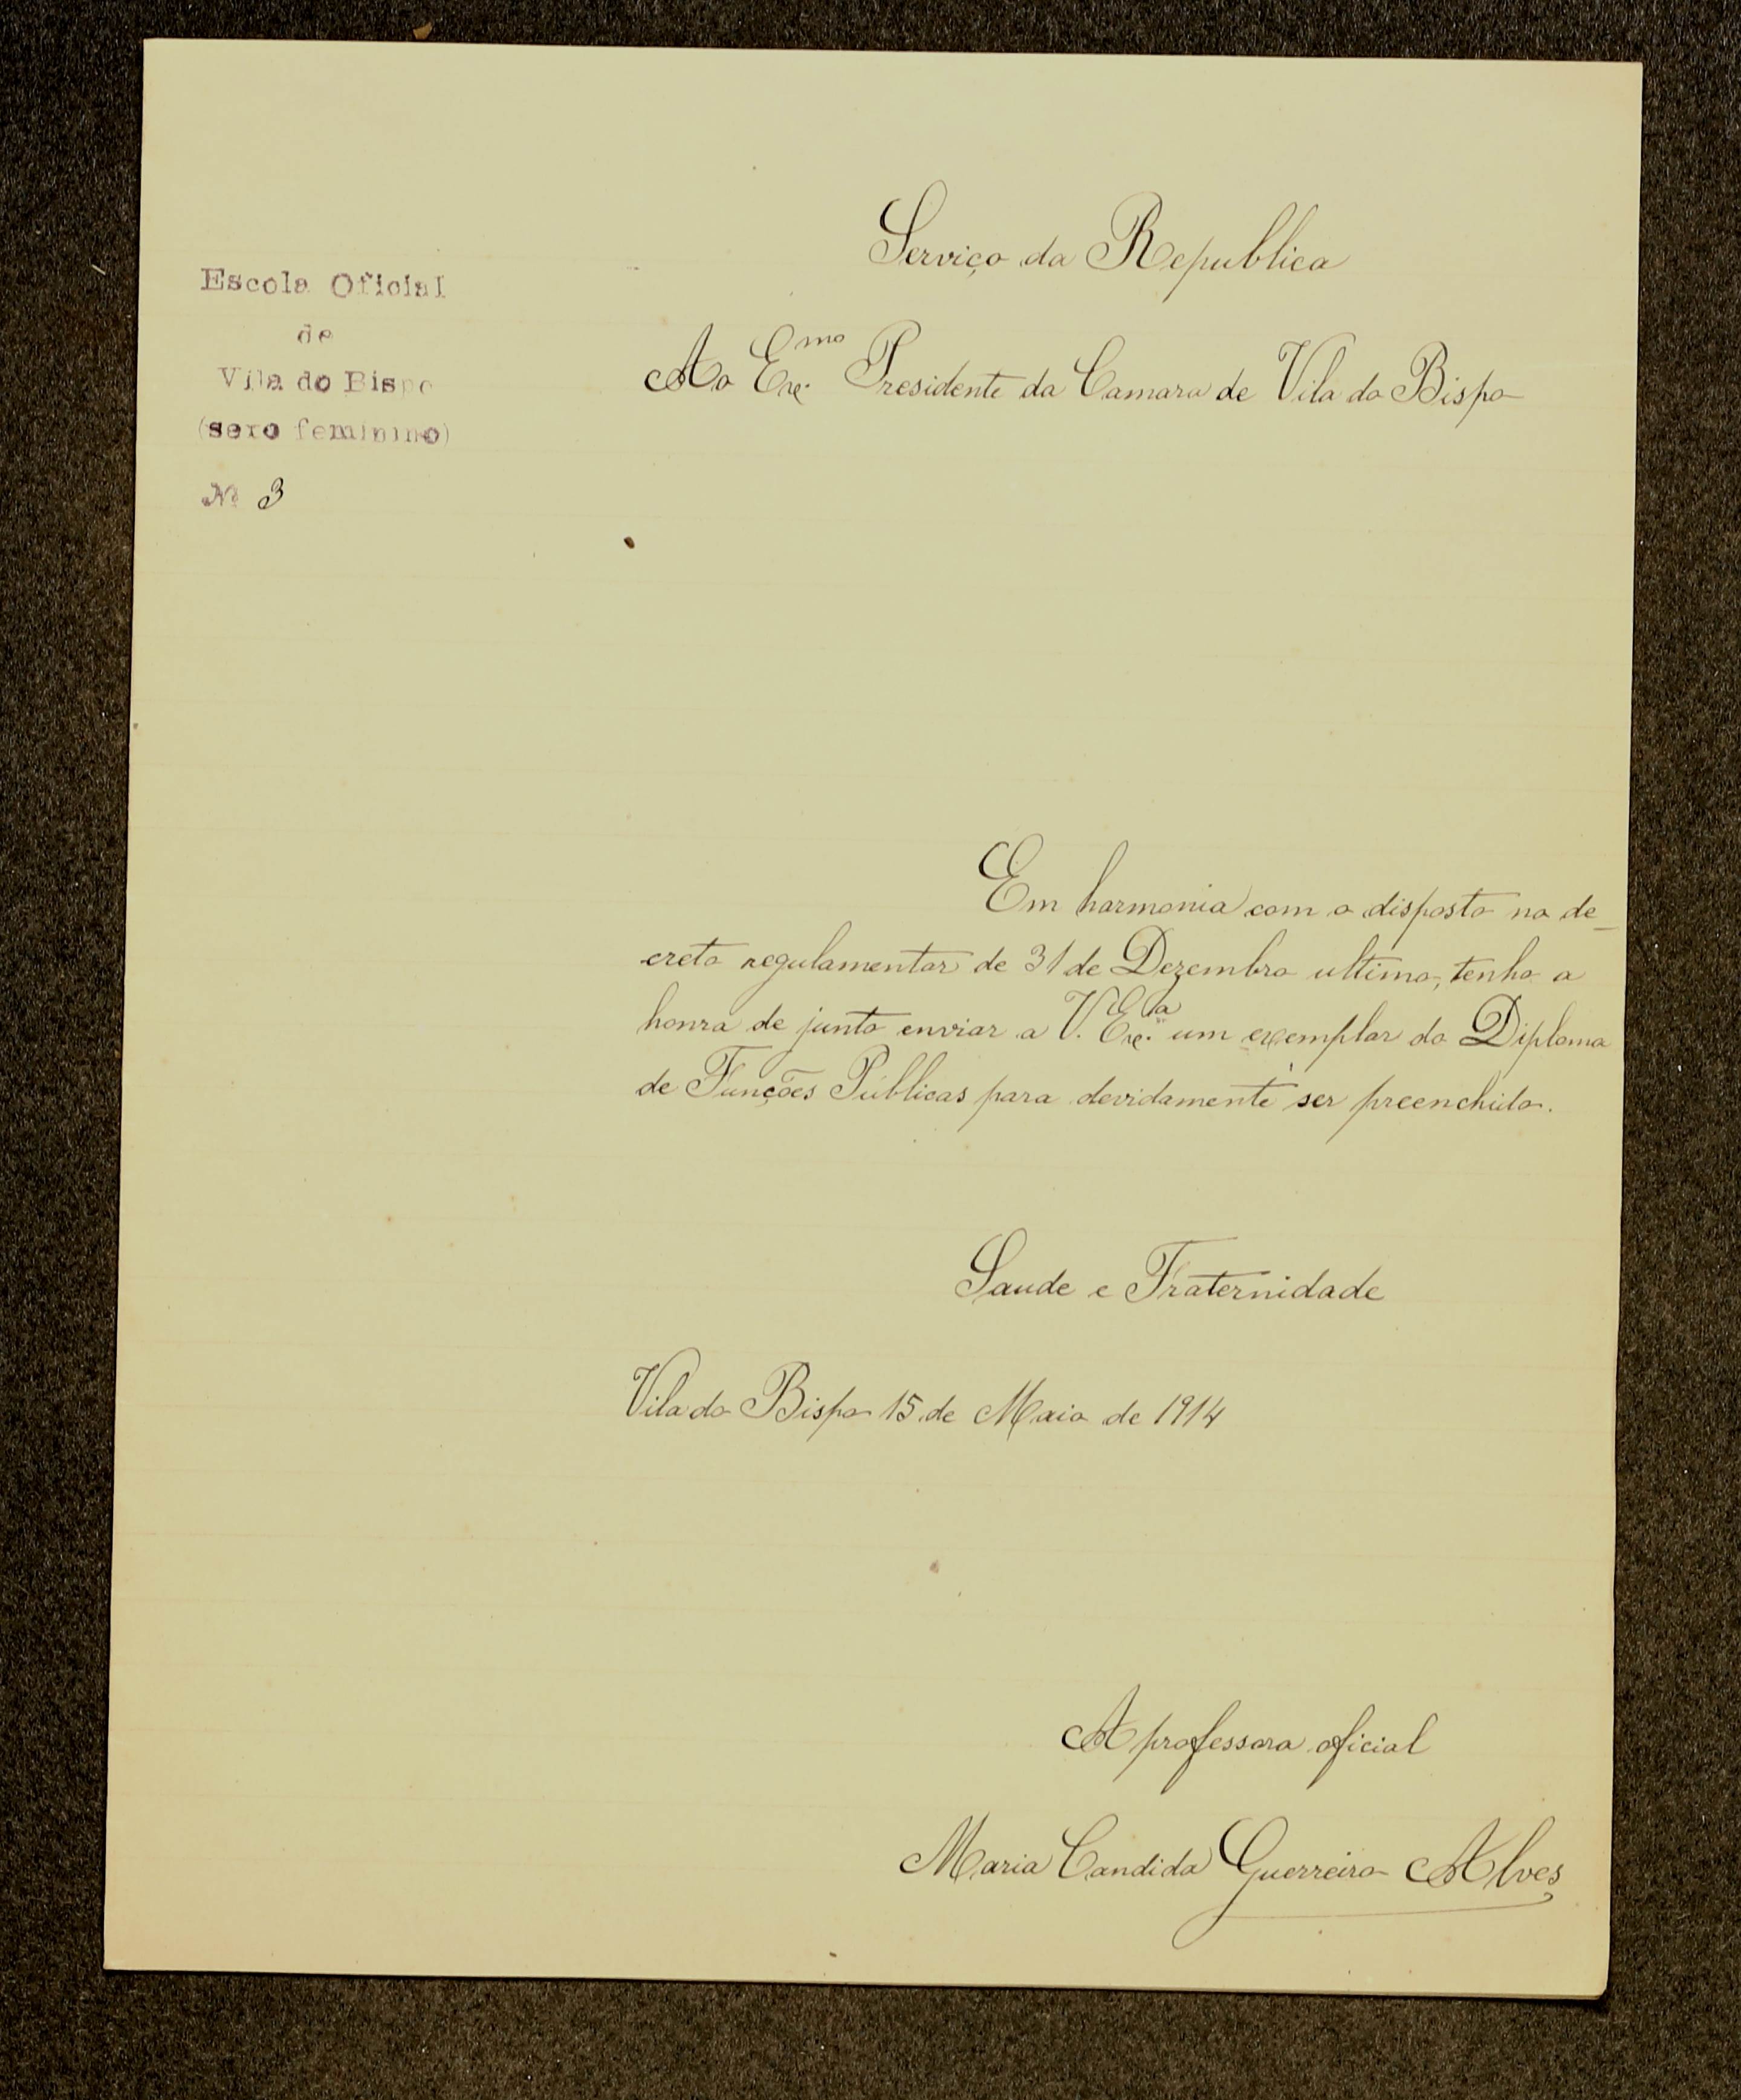 Serviço da Republica
Escola Oficial
de
Vila do Bispo
(sexo feminino)
Nº 3
Ao Exmo. Presidente da Camara de Vila do Bispo
Em harmonia com o disposto no de-
creto regulamentar de 31 de Dezembro ultimo, tenho a
honra de junto enviar a V. Exa. um exemplar do Diploma
de Funções Públicas para devidamente ser preenchido.
Saude e Fraternidade
Vila do Bispo 15 de Maio de 1914
A professora oficial
Maria Candida Guerreiro Alves